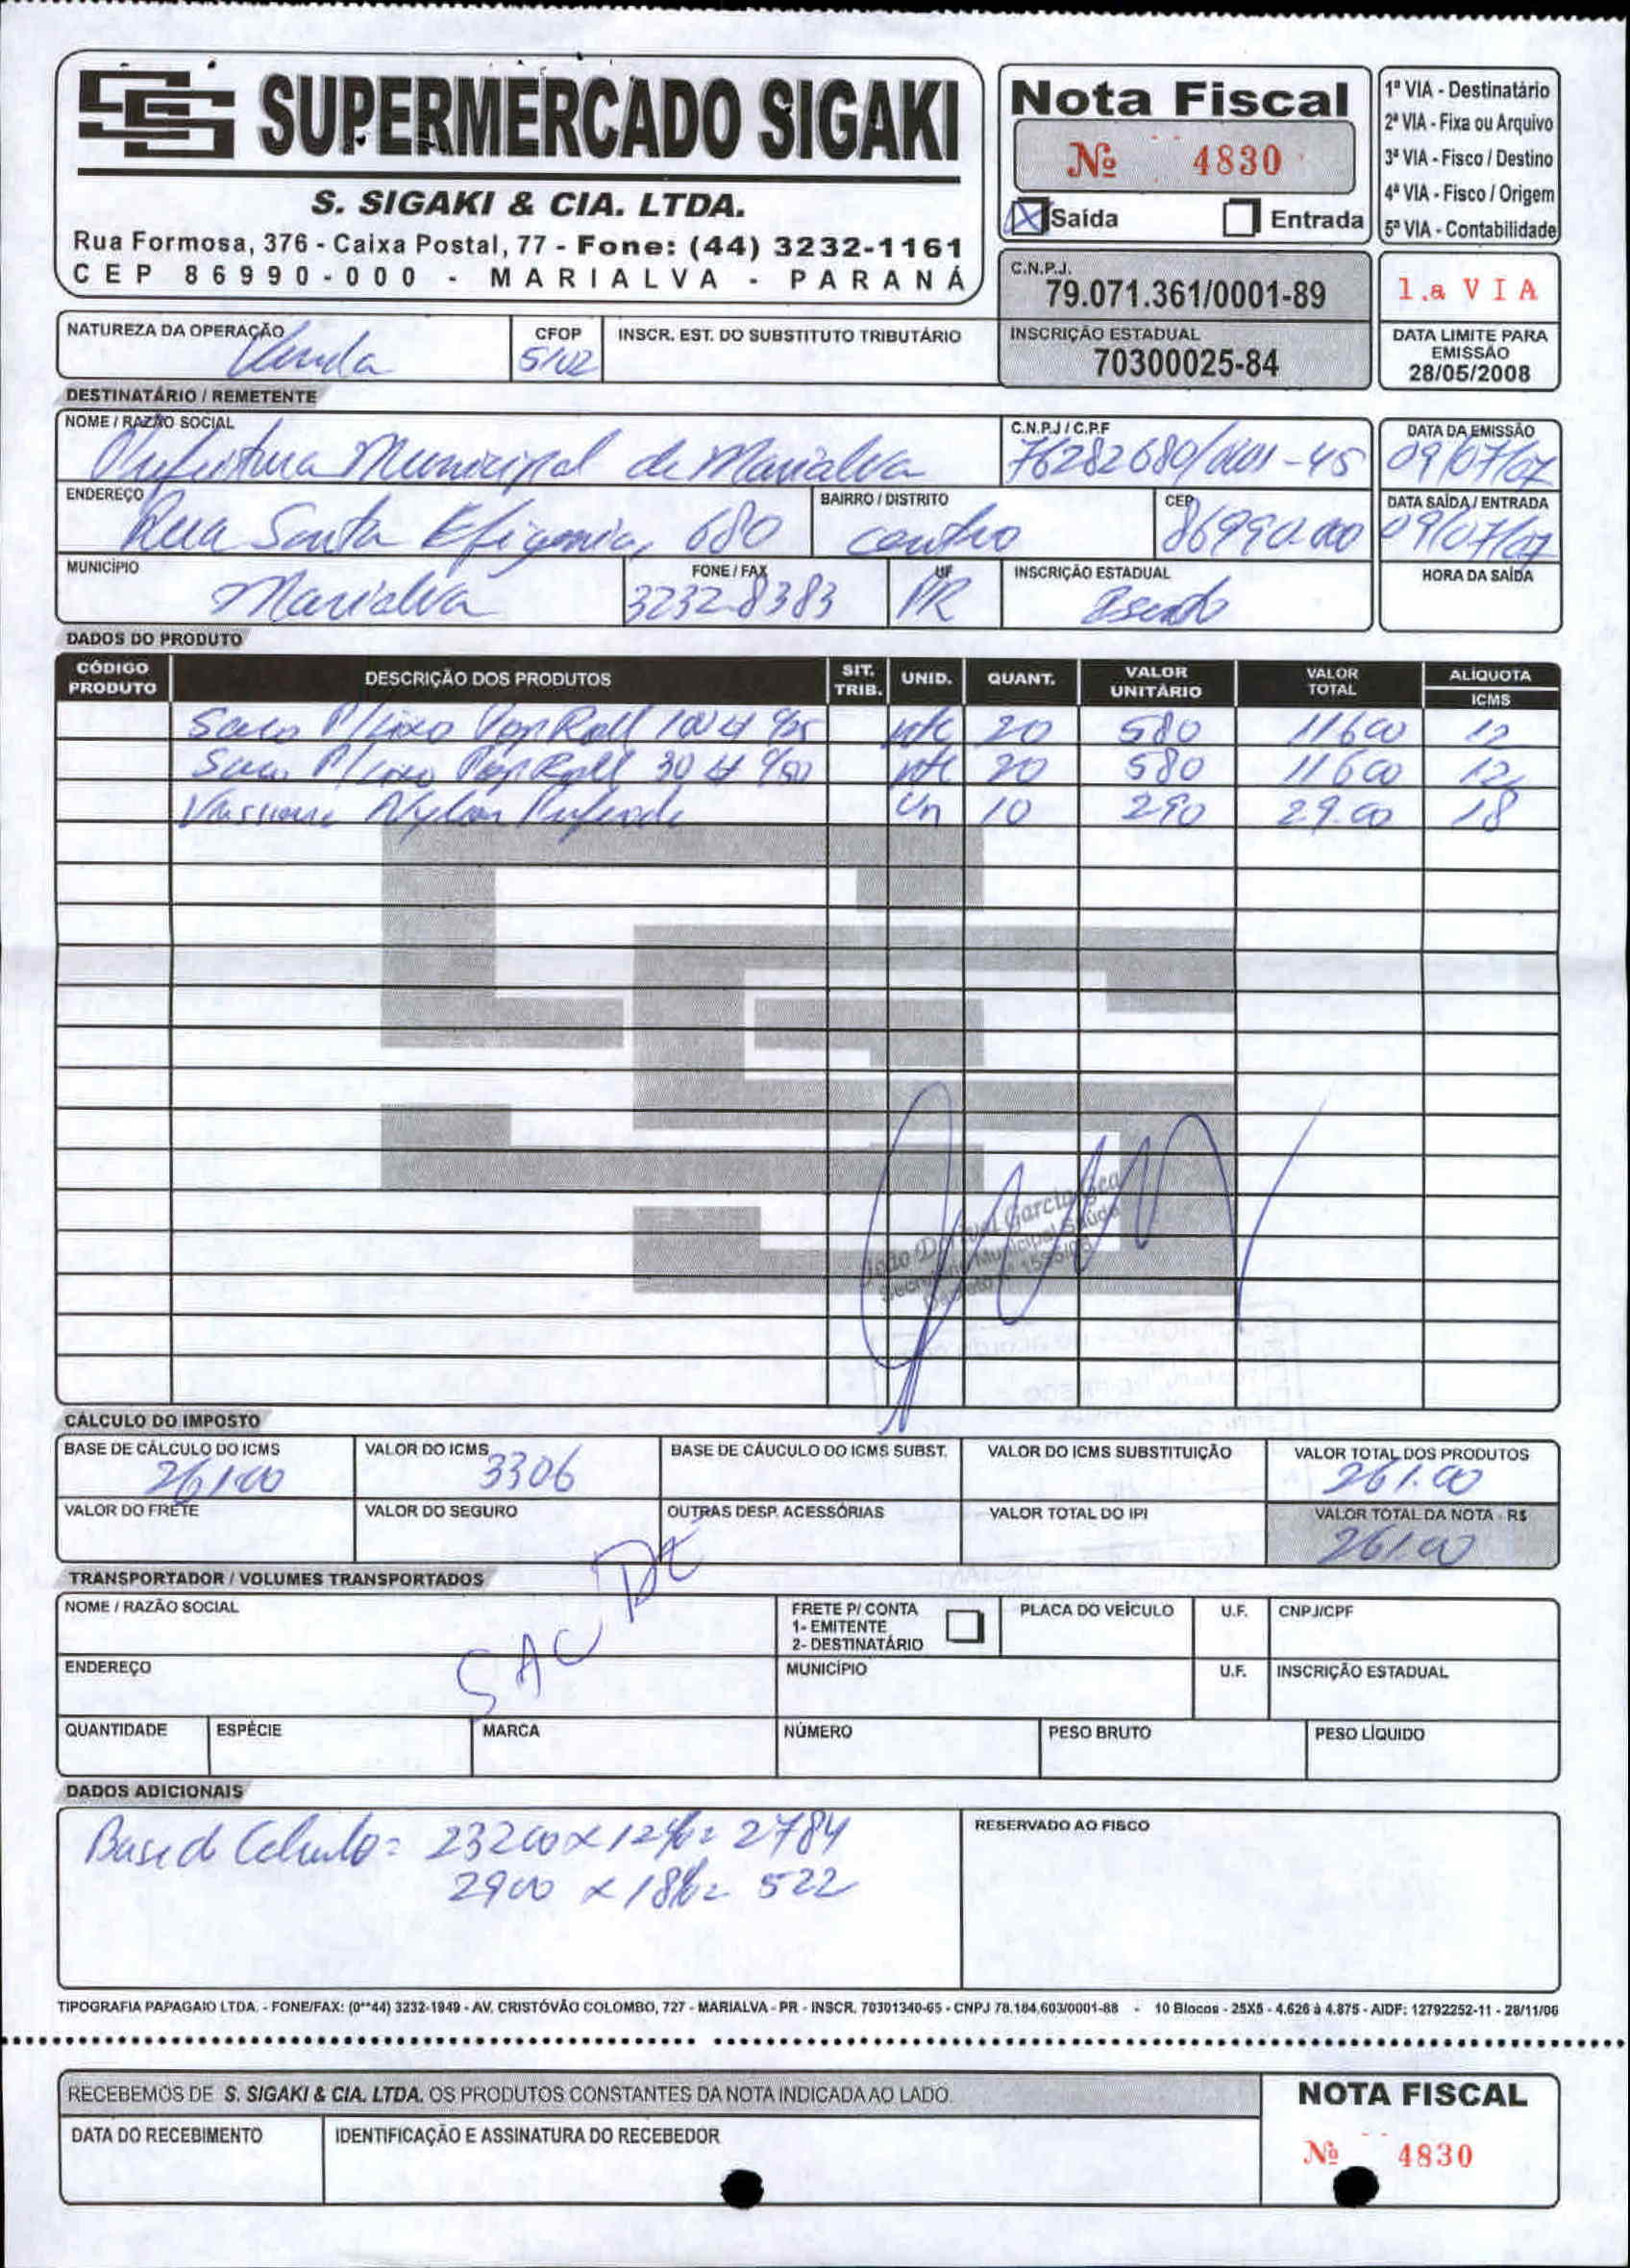 SUPERMERCADO SIGAKI
S. SIGAKI & CIA. LTDA.
Rua Formosa, 376 - Caixa Postal, 77 - Fone: (44) 3232-1161
CEP 86990-000 - MARIALVA - PARANÁ
Nota Fiscal
Nº 4830
Saída Entrada
1ª VIA - Destinatário
2ª VIA - Fixa ou Arquivo
3ª VIA - Fisco / Destino
4ª VIA - Fisco / Origem
5ª VIA - Contabilidade
C.N.P.J.
79.071.361/0001-89
1.a VIA
NATUREZA DA OPERAÇÃO
Venda
CFOP
5102
INSCR. EST. DO SUBSTITUTO TRIBUTÁRIO
INSCRIÇÃO ESTADUAL
70300025-84
DATA LIMITE PARA
EMISSÃO
28/05/2008
DESTINATÁRIO / REMETENTE
NOME / RAZÃO SOCIAL
Prefeitura Municipal de Marialva
C.N.P.J / C.P.F
76282680/0001-45
DATA DA EMISSÃO
09/07/07
ENDEREÇO
Rua Santa Efigenia, 680
BAIRRO / DISTRITO
centro
CEP
86990.000
DATA SAÍDA / ENTRADA
09/07/07
MUNICÍPIO
Marialva
FONE / FAX
3232.8383
UF
PR
INSCRIÇÃO ESTADUAL
Isento
HORA DA SAÍDA
DADOS DO PRODUTO
CÓDIGO PRODUTO DESCRIÇÃO DOS PRODUTOS SIT. TRIB. UNID. QUANT. VALOR UNITÁRIO VALOR TOTAL ALÍQUOTA ICMS
Saco P/ Lixo Pop Roll 100 lt 20 580 11600 12
Saco P/ Lixo Pop Roll 30 lt 20 580 11600 12
Vassoura Nylon Un 10 290 29.00 18
Garcia
Municipal Saúde
CÁLCULO DO IMPOSTO
BASE DE CÁLCULO DO ICMS
261.00
VALOR DO ICMS
3306
BASE DE CÁUCULO DO ICMS SUBST.
VALOR DO ICMS SUBSTITUIÇÃO
VALOR TOTAL DOS PRODUTOS
261.00
VALOR DO FRETE
VALOR DO SEGURO
OUTRAS DESP. ACESSÓRIAS
VALOR TOTAL DO IPI
VALOR TOTAL DA NOTA - R$
261.00
TRANSPORTADOR / VOLUMES TRANSPORTADOS
NOME / RAZÃO SOCIAL
FRETE P/ CONTA
1- EMITENTE
2- DESTINATÁRIO
PLACA DO VEÍCULO
U.F.
CNPJ/CPF
ENDEREÇO
MUNICÍPIO
U.F.
INSCRIÇÃO ESTADUAL
QUANTIDADE
ESPÉCIE
MARCA
NÚMERO
PESO BRUTO
PESO LÍQUIDO
DADOS ADICIONAIS
Base d Calculo = 23200 x 12%= 2784
2900 x 18%= 522
RESERVADO AO FISCO
TIPOGRAFIA PAPAGAIO LTDA. - FONE/FAX: (0**44) 3232-1949 - AV. CRISTÓVÃO COLOMBO, 727 - MARIALVA - PR - INSCR. 70301340-65 - CNPJ 78.184.603/0001-88 - 10 Blocos - 25X5 - 4.626 à 4.875 - AIDF: 12792252-11 - 28/11/06
RECEBEMOS DE S. SIGAKI & CIA. LTDA. OS PRODUTOS CONSTANTES DA NOTA INDICADA AO LADO.
DATA DO RECEBIMENTO
IDENTIFICAÇÃO E ASSINATURA DO RECEBEDOR
NOTA FISCAL
Nº 4830